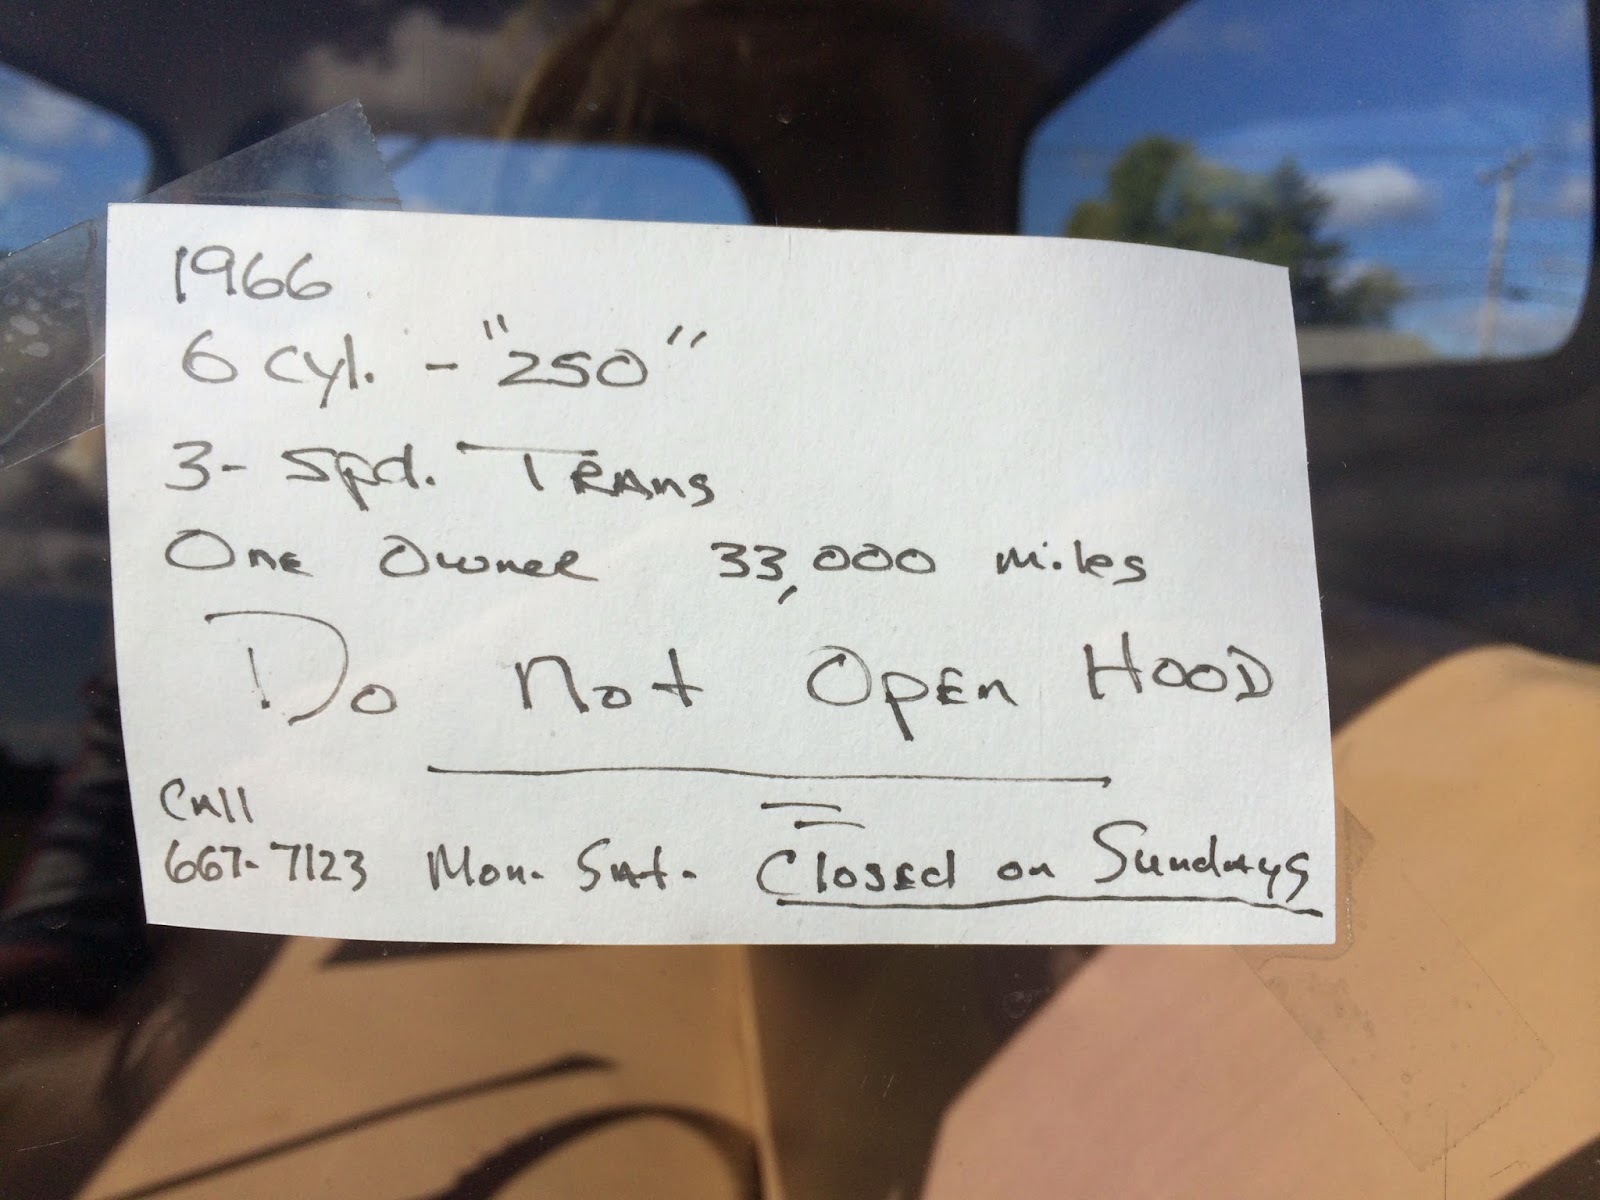 1966
6 cyl. - "250"
3- Spd. Trans
One Owner 33,000 miles
Do Not Open Hood
Call
667-7123 Mon. Sat. Closed on Sundays